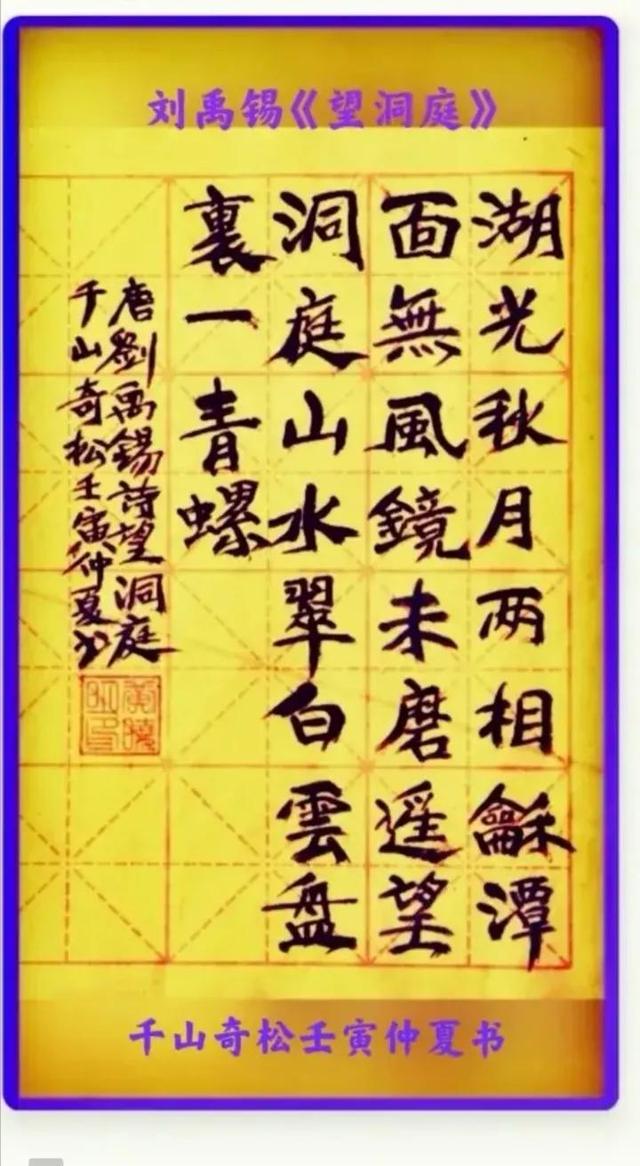 刘禹锡《望洞庭》
湖光秋月两相龢潭
面無風鏡未磨遥望
洞庭山水翠白雲盘
裏一青螺
唐劉禹锡詩望洞庭
千山奇松壬寅仲夏书
千山奇松壬寅仲夏书